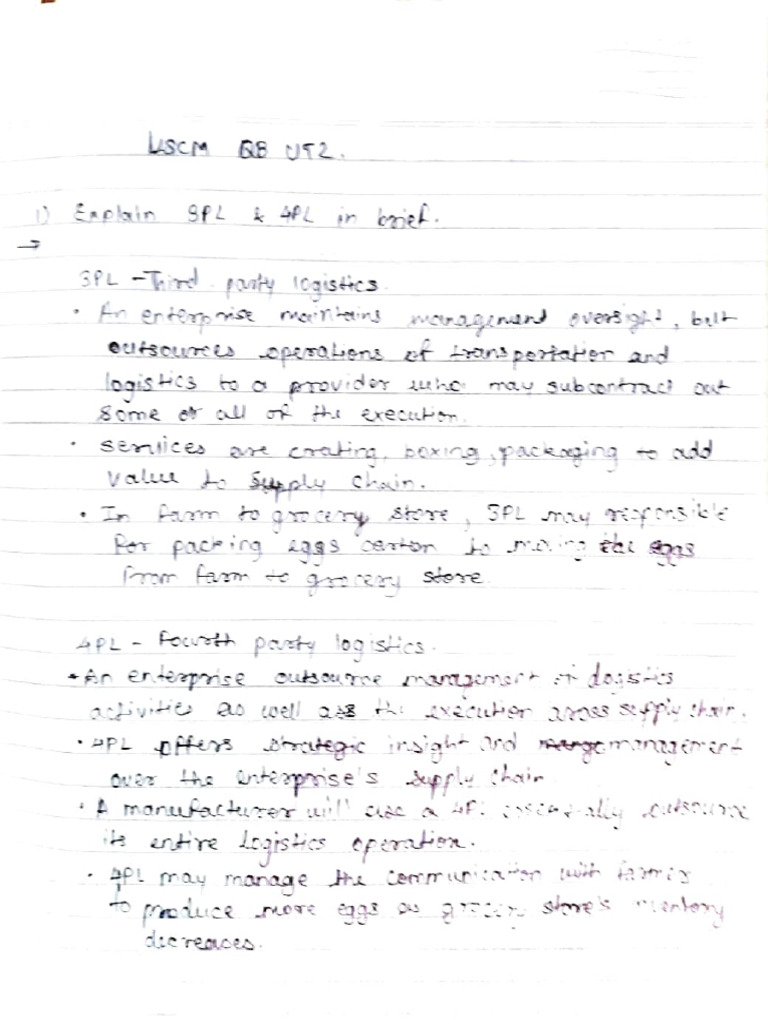 LSCM QB UT2.
1) Explain 3PL & 4PL in brief.
→
3PL - Third party logistics
• An enterprise maintains management oversight, but
outsources operations of transportation and
logistics to a provider who may subcontract out
some or all of the execution.
• services are crating, boxing, packaging to add
value to supply chain.
• In farm to grocery store, 3PL may responsible
for packing eggs carton to moving the eggs
from farm to grocery store.
4PL - Fourth party logistics.
• An enterprise outsource management of logistics
activities as well as the execution across supply chain.
• 4PL offers strategic insight and management
over the enterprise's supply chain
• A manufacturer will use a 4PL essentially outsource
its entire logistics operation.
• 4PL may manage the communication with farmer
to produce more eggs as grocery store's inventory
decreases.